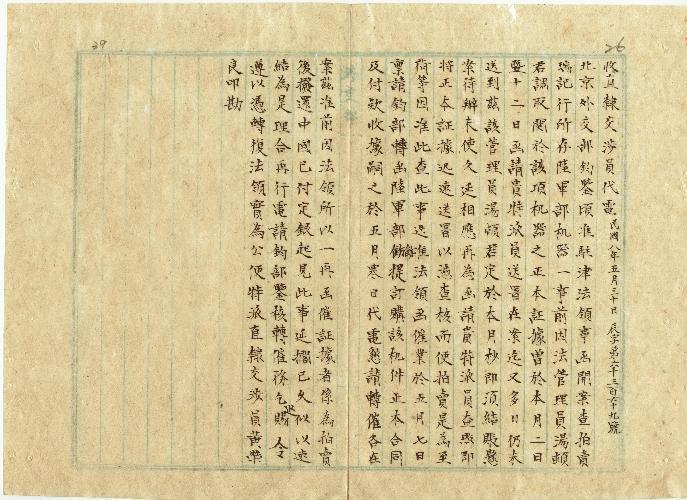 26
29
收直隸交涉員代電 民國八年五月三十日 辰字第六十三百六十九號
北京外交部鈞鑒頃准駐津法領事函開案查拍賣
瑞記行所存陸軍部机器一事前因法管理員湯頓
君調取關於該項机器之正本証據曾於本月二日
暨十二日函請貴特派員送署在案迄又多日仍未
送到茲該管理員湯頓君定於本月杪即須結賬懸
案待辦未便久延相應再為函請貴特派員查照即
將正本証據迅速送署以憑查核而便拍賣是為至
荷等因准此查此事迭准法領函催業於五月七日
稟請鈞部轉函陸軍部飭提訂購該机件正本合同
及付款收據嗣又於五月寒日代電懇請轉催各在
案茲准前因法領所以一再函催証據者係為拍賣
後攤還中國已付定銀起見此事延擱已久似以速
結為是理合再行電請鈞部鑒核轉催務乞賜 令
遵以憑轉復法領實為公便特派直隸交涉員黃榮
良叩勘